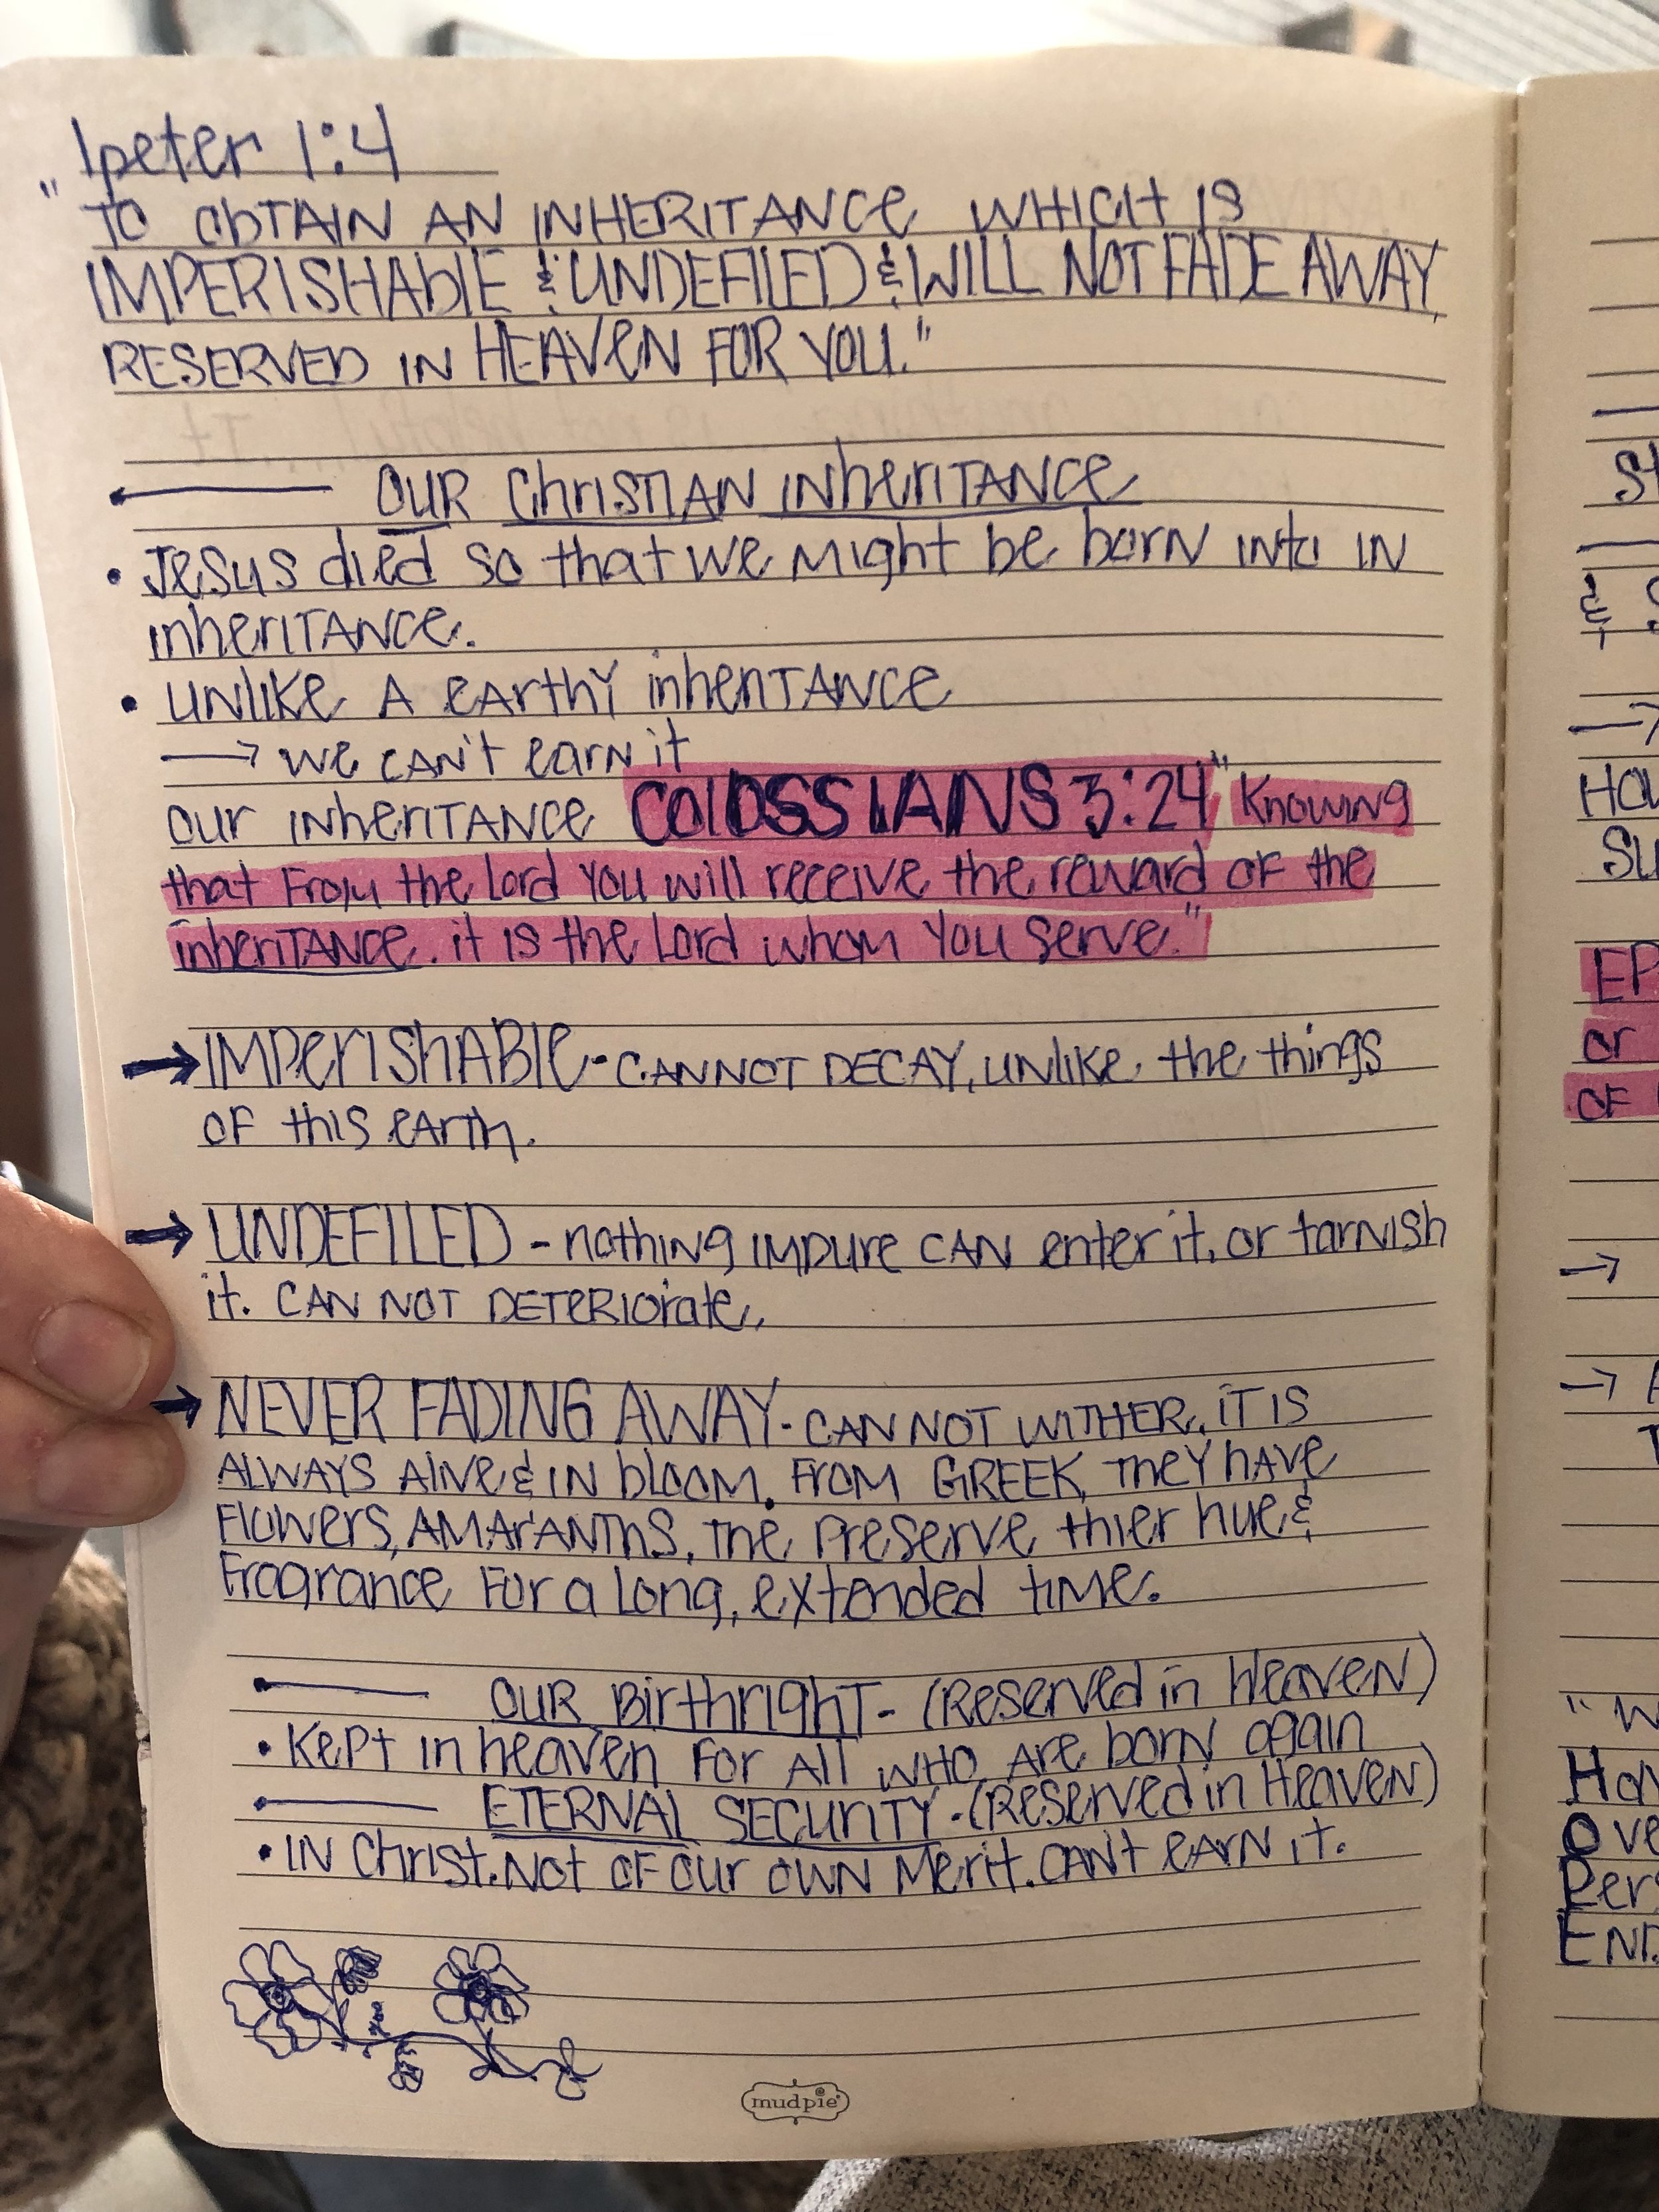 1peter 1:4
"TO ObTAIN AN INHERITANCe WHICH IS
IMPERISHAblE & UNDEFILED & WILL NOT FADE AWAY,
RESERVED IN HEAVeN FOR YOU."
OUR ChrISTIAN INherITANCe
• Jesus died so that we MIght be born into IN
inherITANCe.
• UNlIKe A eArthY inherITANCe
→ we CAN't eArN it
our INherITANCe COlOSSIANS 3:24 "KNOwINg
that FroM the Lord You will receIVe the reward OF the
inherITANCe. it IS the Lord whoM You Serve."
→ IMPerIShABlE - CANNOT DECAY, UNlIKe the things
OF thIS eArth.
→ UNDEFILED - nothINg IMPUre CAN enter it, or tarNish
it. CAN NOT DETERIOrate.
→ NEVER FADING AWAY - CAN NOT WITHER, IT IS
ALWAYS AlIVe & IN blOOM. FrOM GREEK, TheY hAVe
FlOWerS, AMArANThS, The PreServe thier hue &
FragraNce For a LONg, exteNded tIMe.
OUR BIrthrIghT - (ReServed in HeaveN)
• KePt IN heaveN For All WHO Are borN agaiN
ETERNAL SECUrITY - (ReServed in HeaveN)
• IN ChrIst. Not OF Our OWN Merit. CAN't eArN it.
mudpie
EP
or
OF